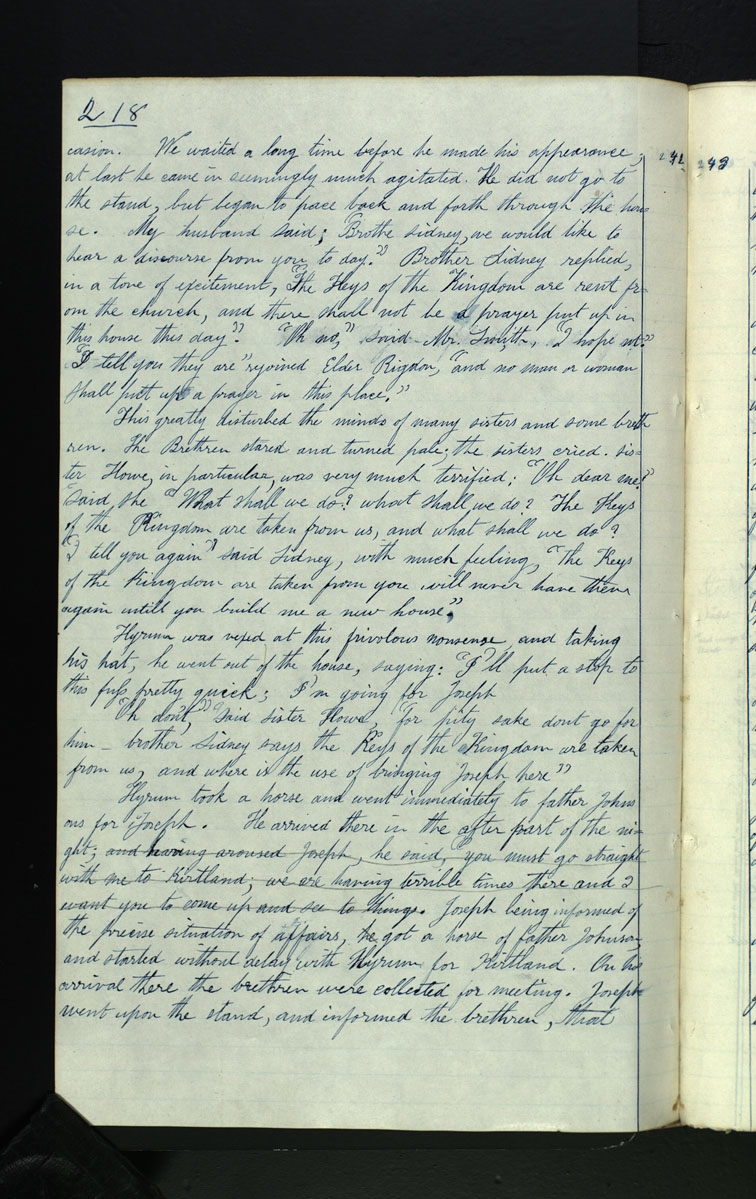 218
casion. We waited a long time before he made his appearance;
at last he came in seemingly much agitated. He did not go to
the stand, but began to pace back and forth through the hou
se. My husband said; "Brothe Sidney, we would like to
hear a discourse from you to day." Brother Sidney replied,
in a tone of excitement, "The Keys of the Kingdom are rent fr-
om the church, and there shall not be a prayer put up in
this house this day". "Oh no," said Mr. Smith, "I hope not."
"I tell you they are" rejoined Elder Rigdon, "and no man or woman
shall put up a prayer in this place."
This greatly disturbed the minds of many sisters and some breth
ren. The Brethren stared and turned pale; the sisters cried. sis=
ter Howe, in particular, was very much terrified: "Oh dear me!"
said she "What shall we do? what shall we do? The Keys
of the Kingdom are taken from us, and what shall we do?
"I tell you again" said Sidney, with much feeling, "The Keys
of the kingdom are taken from you will never have them
again untill you build me a new house."
Hyrum was vexed at this frivolous nonsense and taking
his hat, he went out of the house, saying: "I'll put a stop to
this fuss pretty quick; I'm going for Joseph
"Oh don't," said sister Howe, "for pity sake dont go for
him- brother Sidney says the Keys of the Kingdom are taken
from us, and where is the use of bringing Joseph here"
Hyrum took a horse and went immediately to father Johns
ons for Joseph. He arrived there in the after part of the ni-
ght; and having aroused Joseph, he said, "you must go straight
with me to Kirtland; we are having terrible times there and I
want you to come up and see to things. Joseph being informed of
the precise situation of affairs, he got a horse of father Johnson
and started without delay with Hyrum for Kirtland. On his
arrival there the brethren were collected for meeting. Joseph
went upon the stand, and informed the brethren, that
242
243